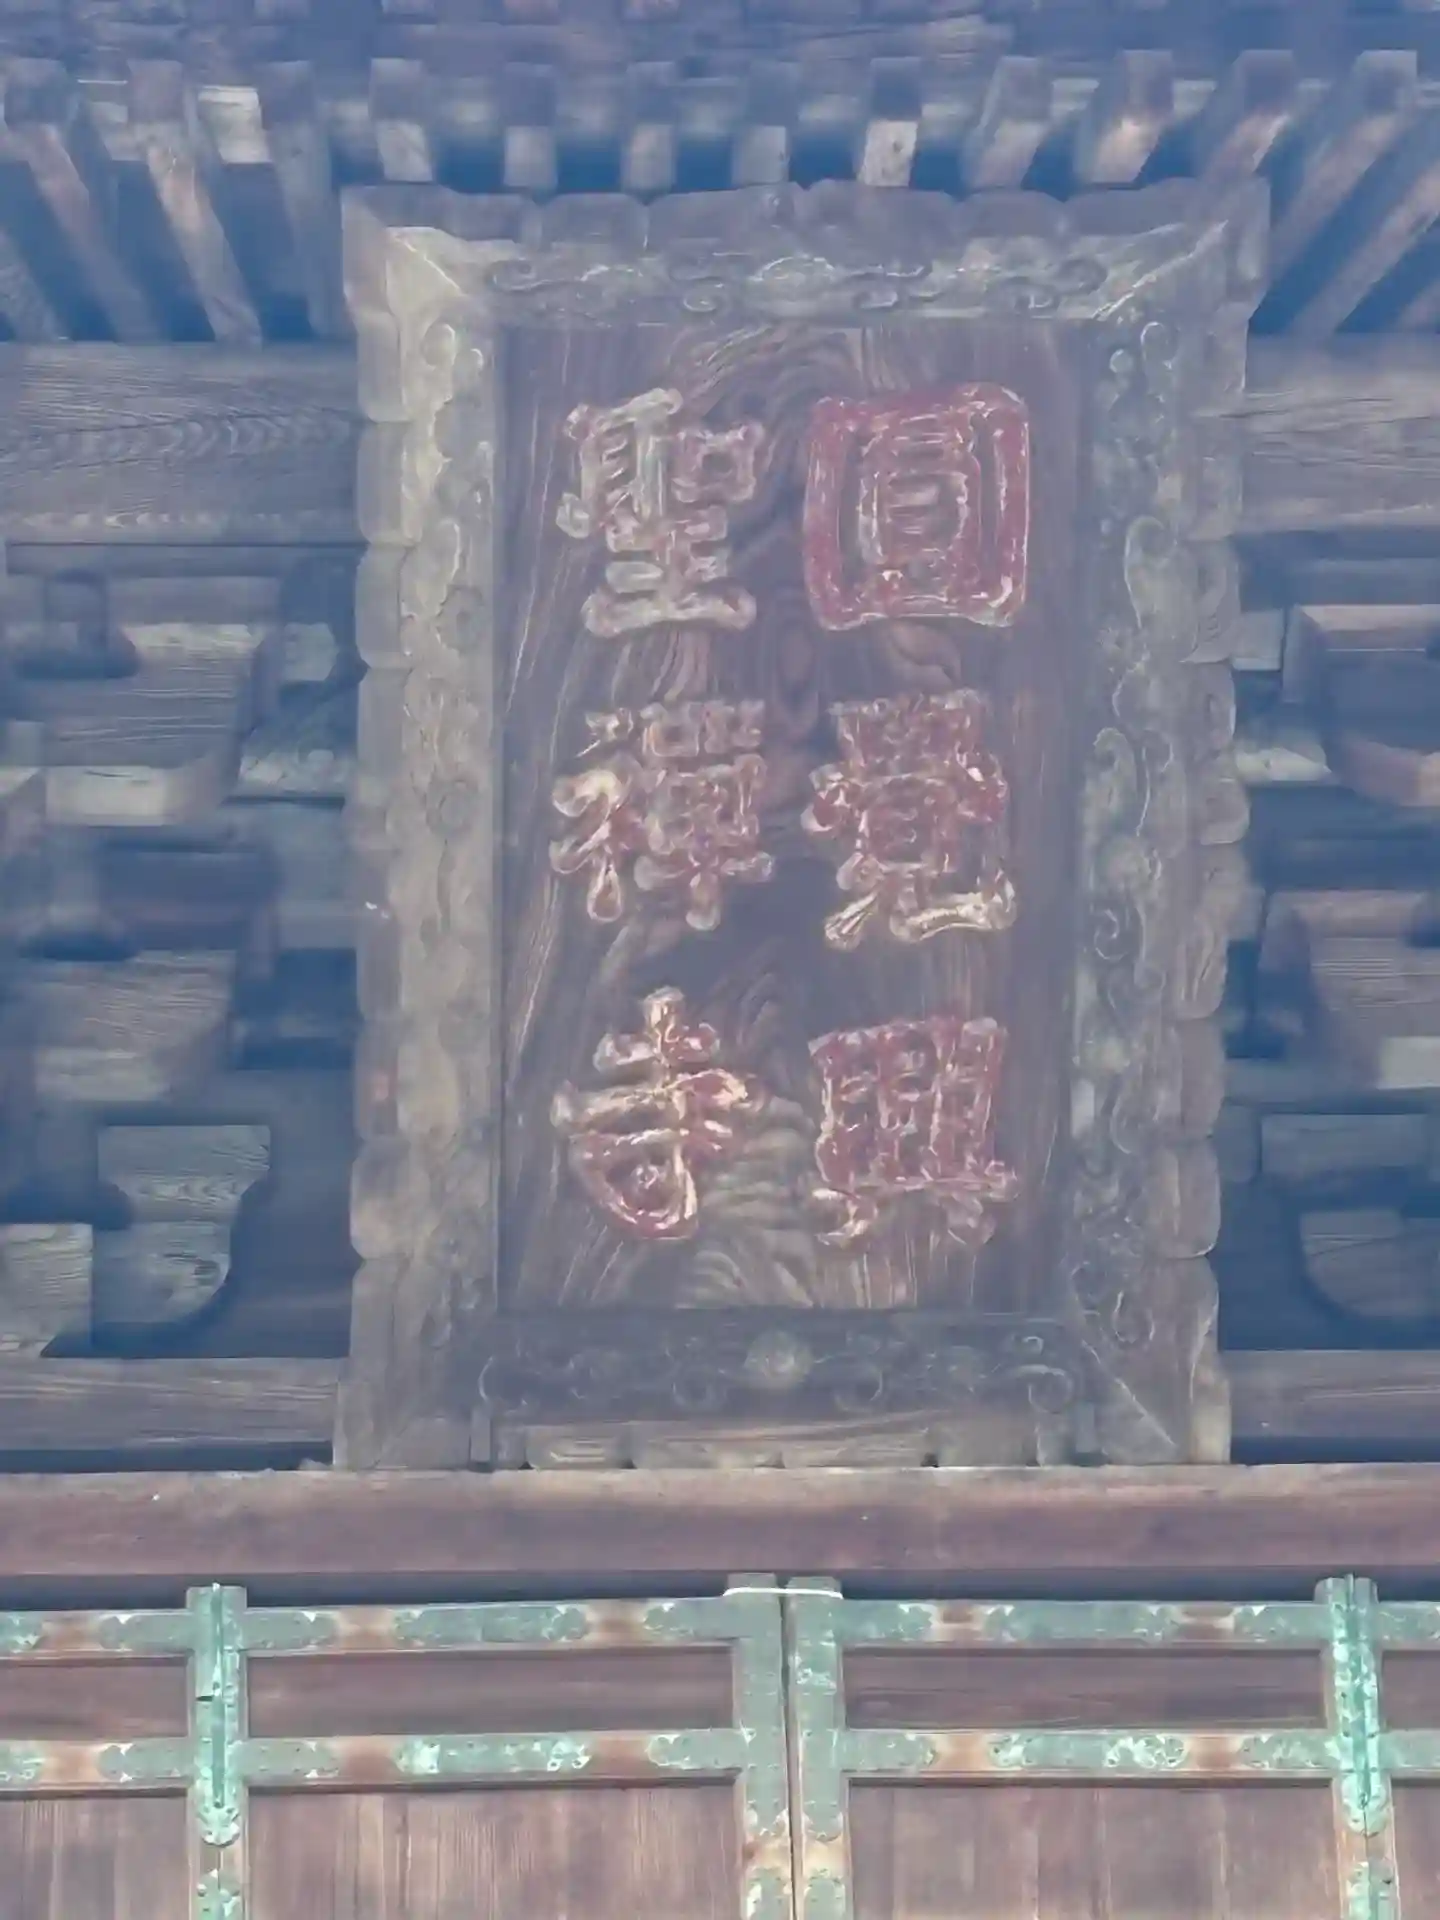 圓覺興
聖禪寺